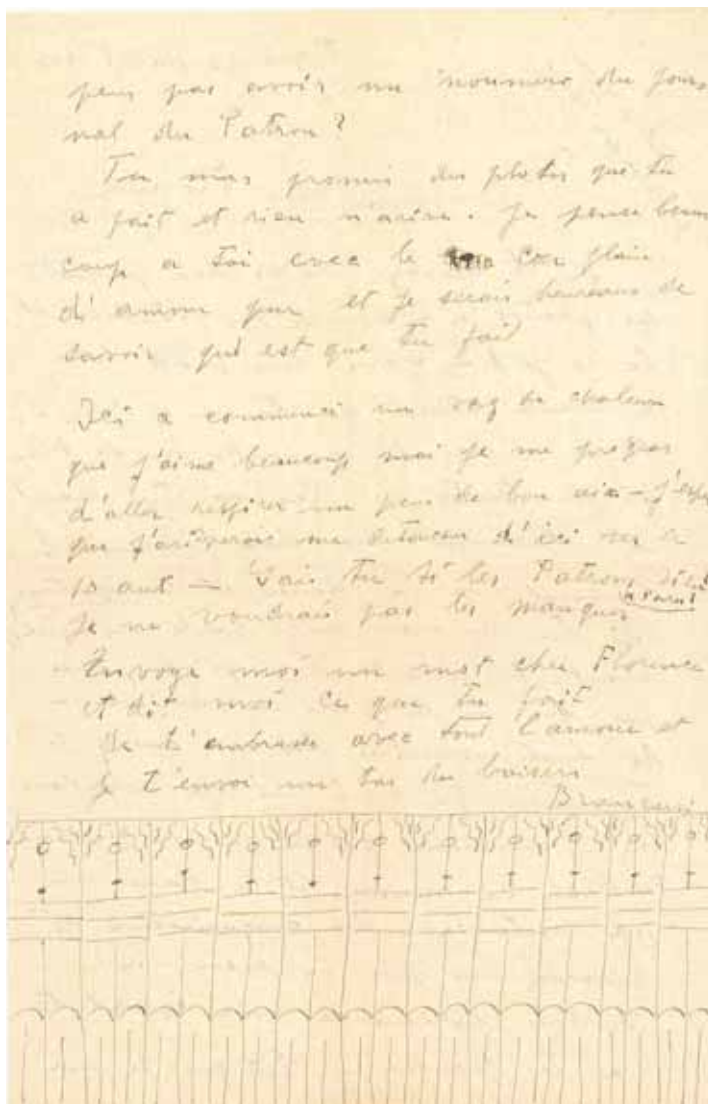 peus pas avoir un noumero du jour
nal du Patron?
Tu mas promis des photos que tu
a fait et rien n'arive. Je pense beau
coup a toi avec le cœr plain
d'amour pur et je serais heureaus de
savoir qui est que tu fait
Ici a commencé un vag de chaleur
que j'aime beaucoup mai je me prepar
d'aller respirer un peu de bon air – j'esp
que j'ariverais me d'ici
10 aut – Sais tu si les Patrons
je ne voudrais pas les manquer
Envoye moi un mot cher Florence
et dit moi ce que tu fait
Je t'embrasse avec tout l'amour et
je t'envoi un tas de baisers
Brancusi